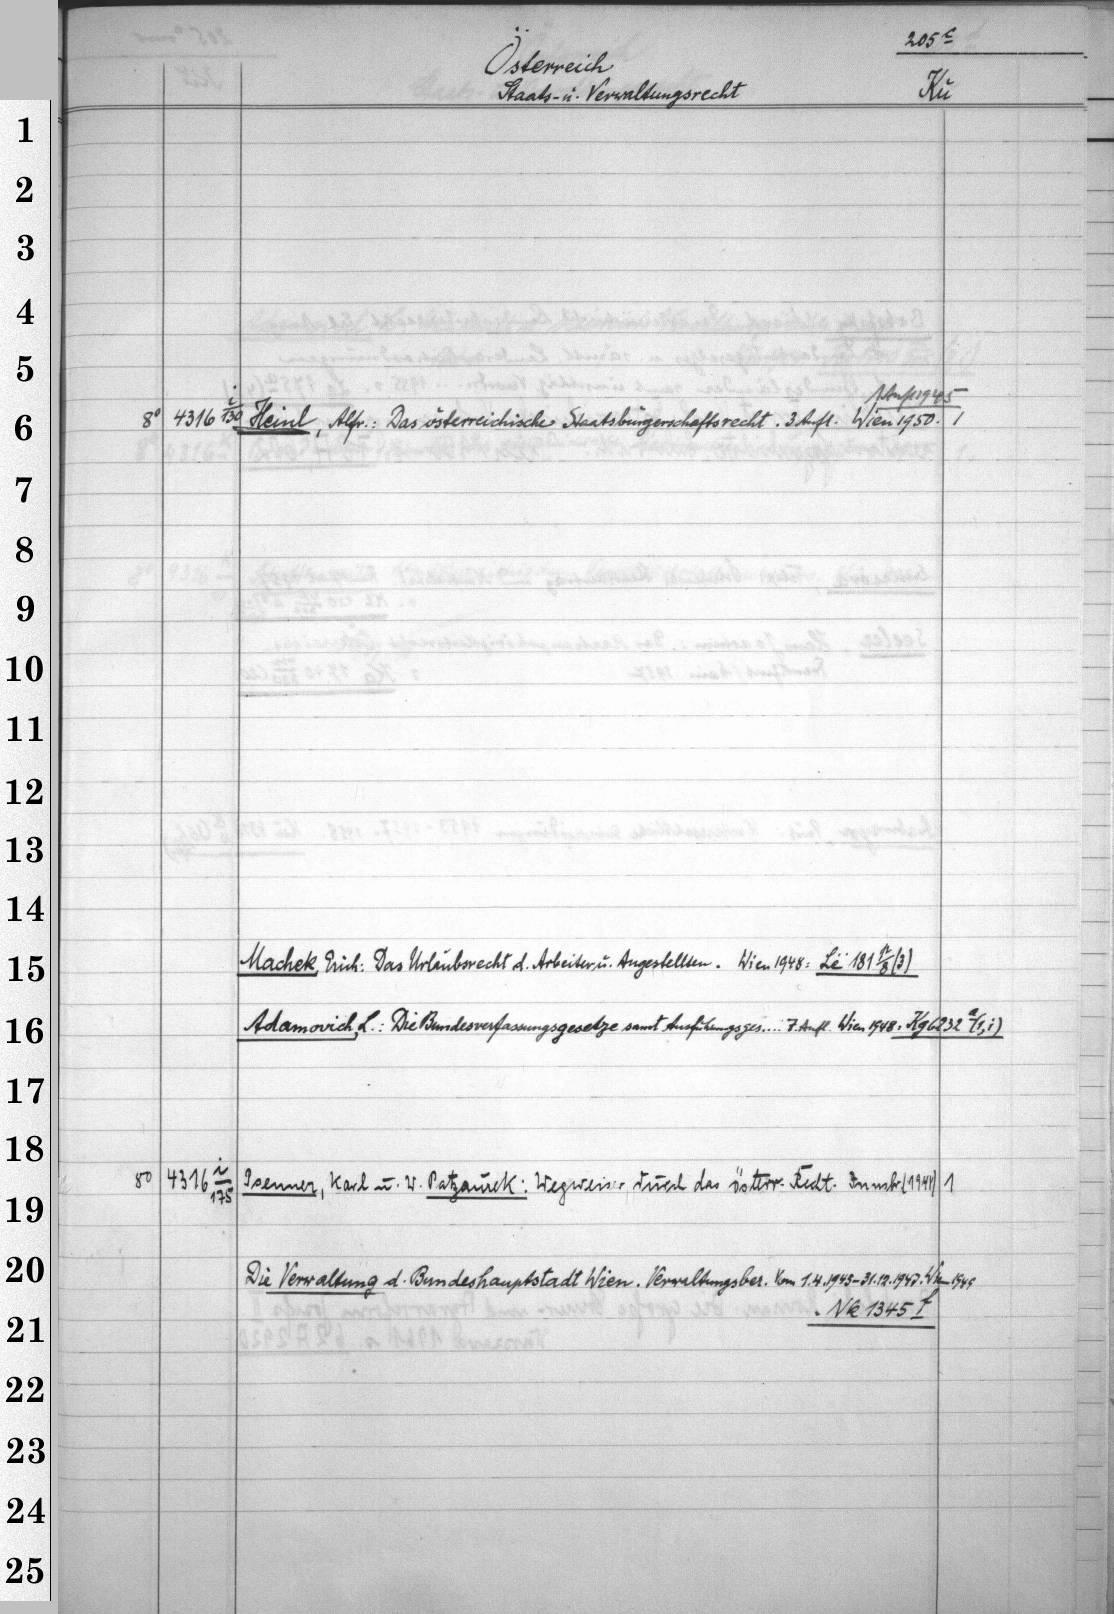 205c
Österreich
Staats- u. Verwaltungsrecht Kü
1
2
3
4
5
1. Aufl. 1945
6 8° 4316 i/130 Heinl, Alfr.: Das österreichische Staatsbürgerschaftsrecht. 3. Aufl. Wien 1950. 1
7
8
9
10
11
12
13
14
15 Machek, Erich: Das Urlaubsrecht d. Arbeiter u. Angestellten. Wien 1948: Lë 181 n/8 (3)
16 Adamovich, L.: Die Bundesverfassungsgesetze samt Ausführungsges.... 7. Aufl. Wien 1948. Kg 6232 a/(1,i)
17
18
8° 4316 i/175 Isenner, Karl u. W. Patzaurek: Wegweiser durch das österr. Recht. Innsbr. (1941) 1
19
20 Die Verwaltung d. Bundeshauptstadt Wien. Verwaltungsber. Vom 1.4.1945-31.12.1947. Wien 1949
. Nk 1345 f
21
22
23
24
25